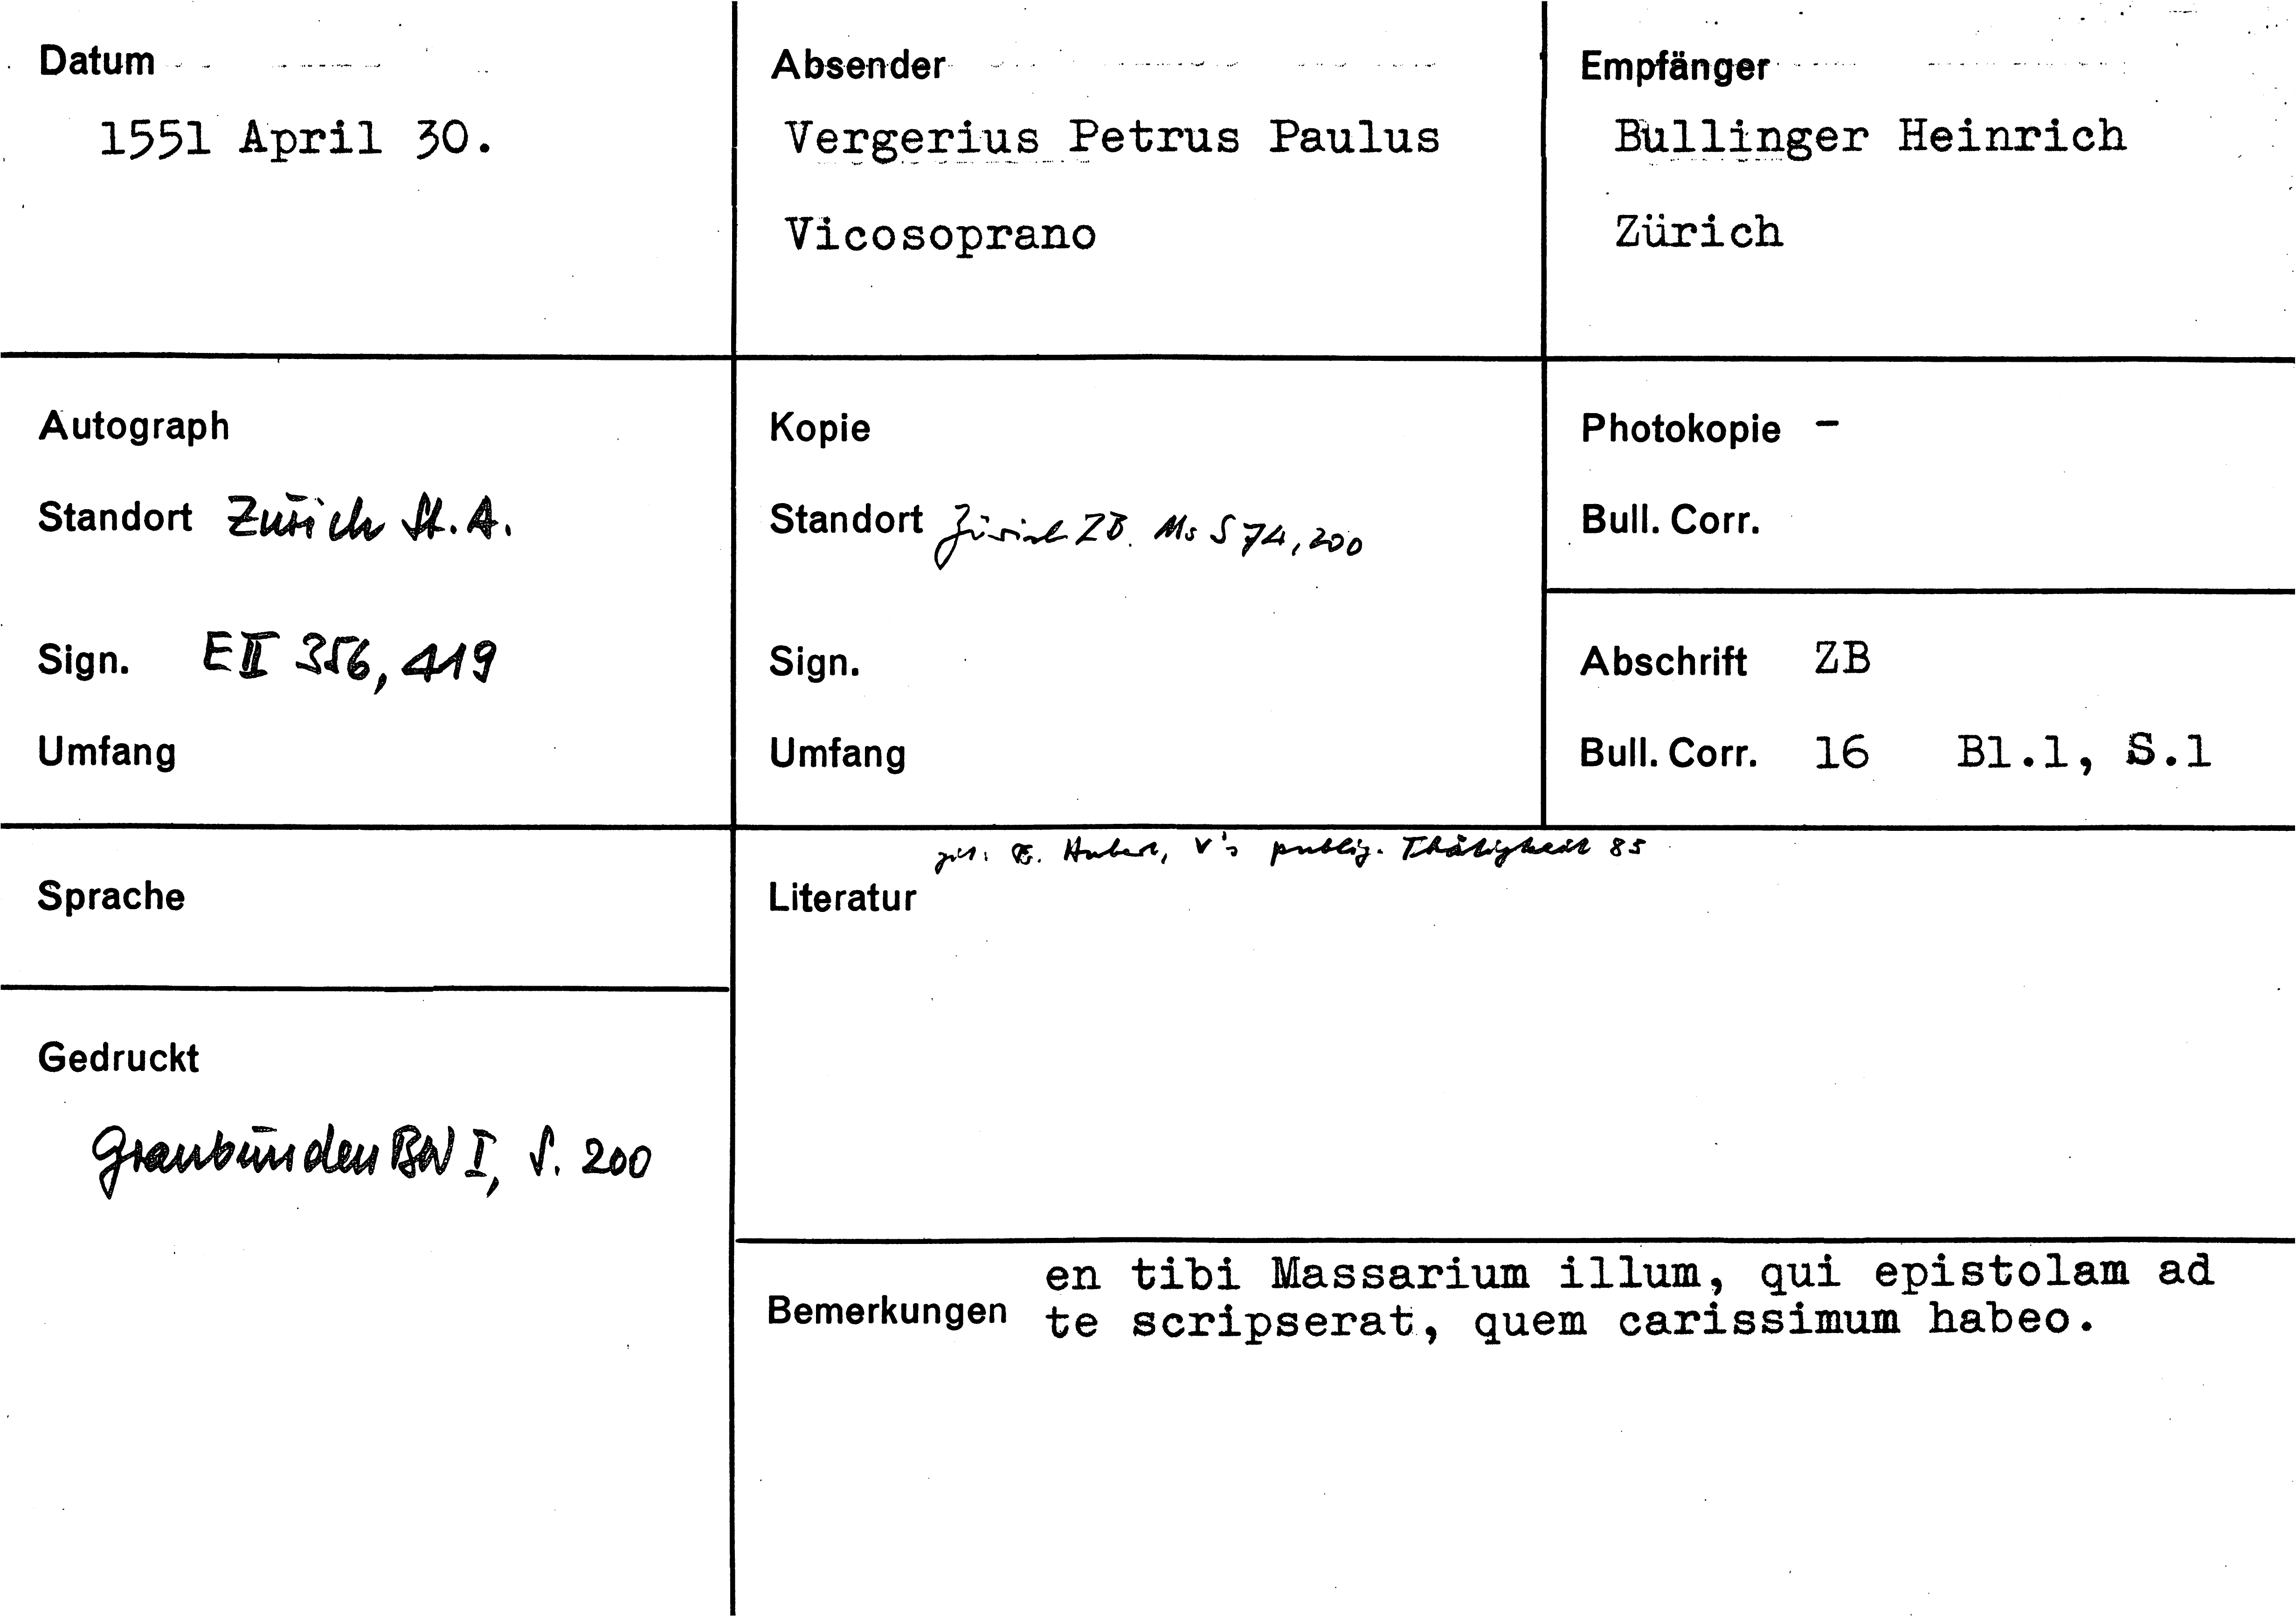 Datum
1551 April 30.
Absender
Vergerius Petrus Paulus
Vicosoprano
Empfänger
Bullinger Heinrich
Zürich
Autograph
Standort Zürich St. A.
Sign. E II 356, 419
Umfang
Kopie
Standort Zürich ZB. Ms S 74, 200
Sign.
Umfang
Photokopie -
Bull. Corr.
Abschrift ZB
Bull. Corr. 16 Bl.1, S.1
Sprache
Gedruckt
Graubünden BW I, S. 200
zit: F. Hubert, V's publiz. Thätigkeit 85
Literatur
en tibi Massarium illum, qui epistolam ad
Bemerkungen te scripserat, quem carissimum habeo.